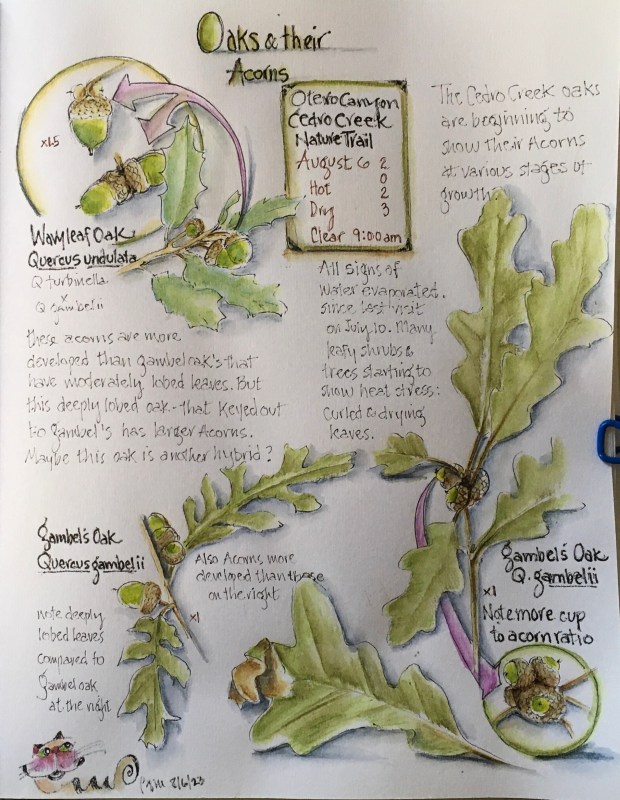 Oaks & their
Acorns
Otero Canyon
Cedro Creek
Nature Trail
August 6 2
Hot 0
Dry 2
Clear 9:00am 3
The Cedro Creek oaks
are beginning to
show their Acorns
at various stages of
growth.
x1.5
Wavyleaf Oak
Quercus undulata
Q turbinella
x
Q gambelii
these acorns are more
developed than gambel oak's that
have moderately lobed leaves. But
this deeply lobed oak - that keyed out
to gambel's has larger Acorns.
Maybe this oak is another hybrid?
All signs of
water evaporated
since last visit
on July 10. Many
leafy shrubs &
trees starting to
show heat stress:
curled & drying
leaves.
Gambel's Oak
Quercus gambelii
Also Acorns more
developed than those
on the right
x1
note deeply
lobed leaves
compared to
Gambel oak
at the right
Gambel's Oak
Q. gambelii
x1
Note more cup
to acorn ratio
8/6/23